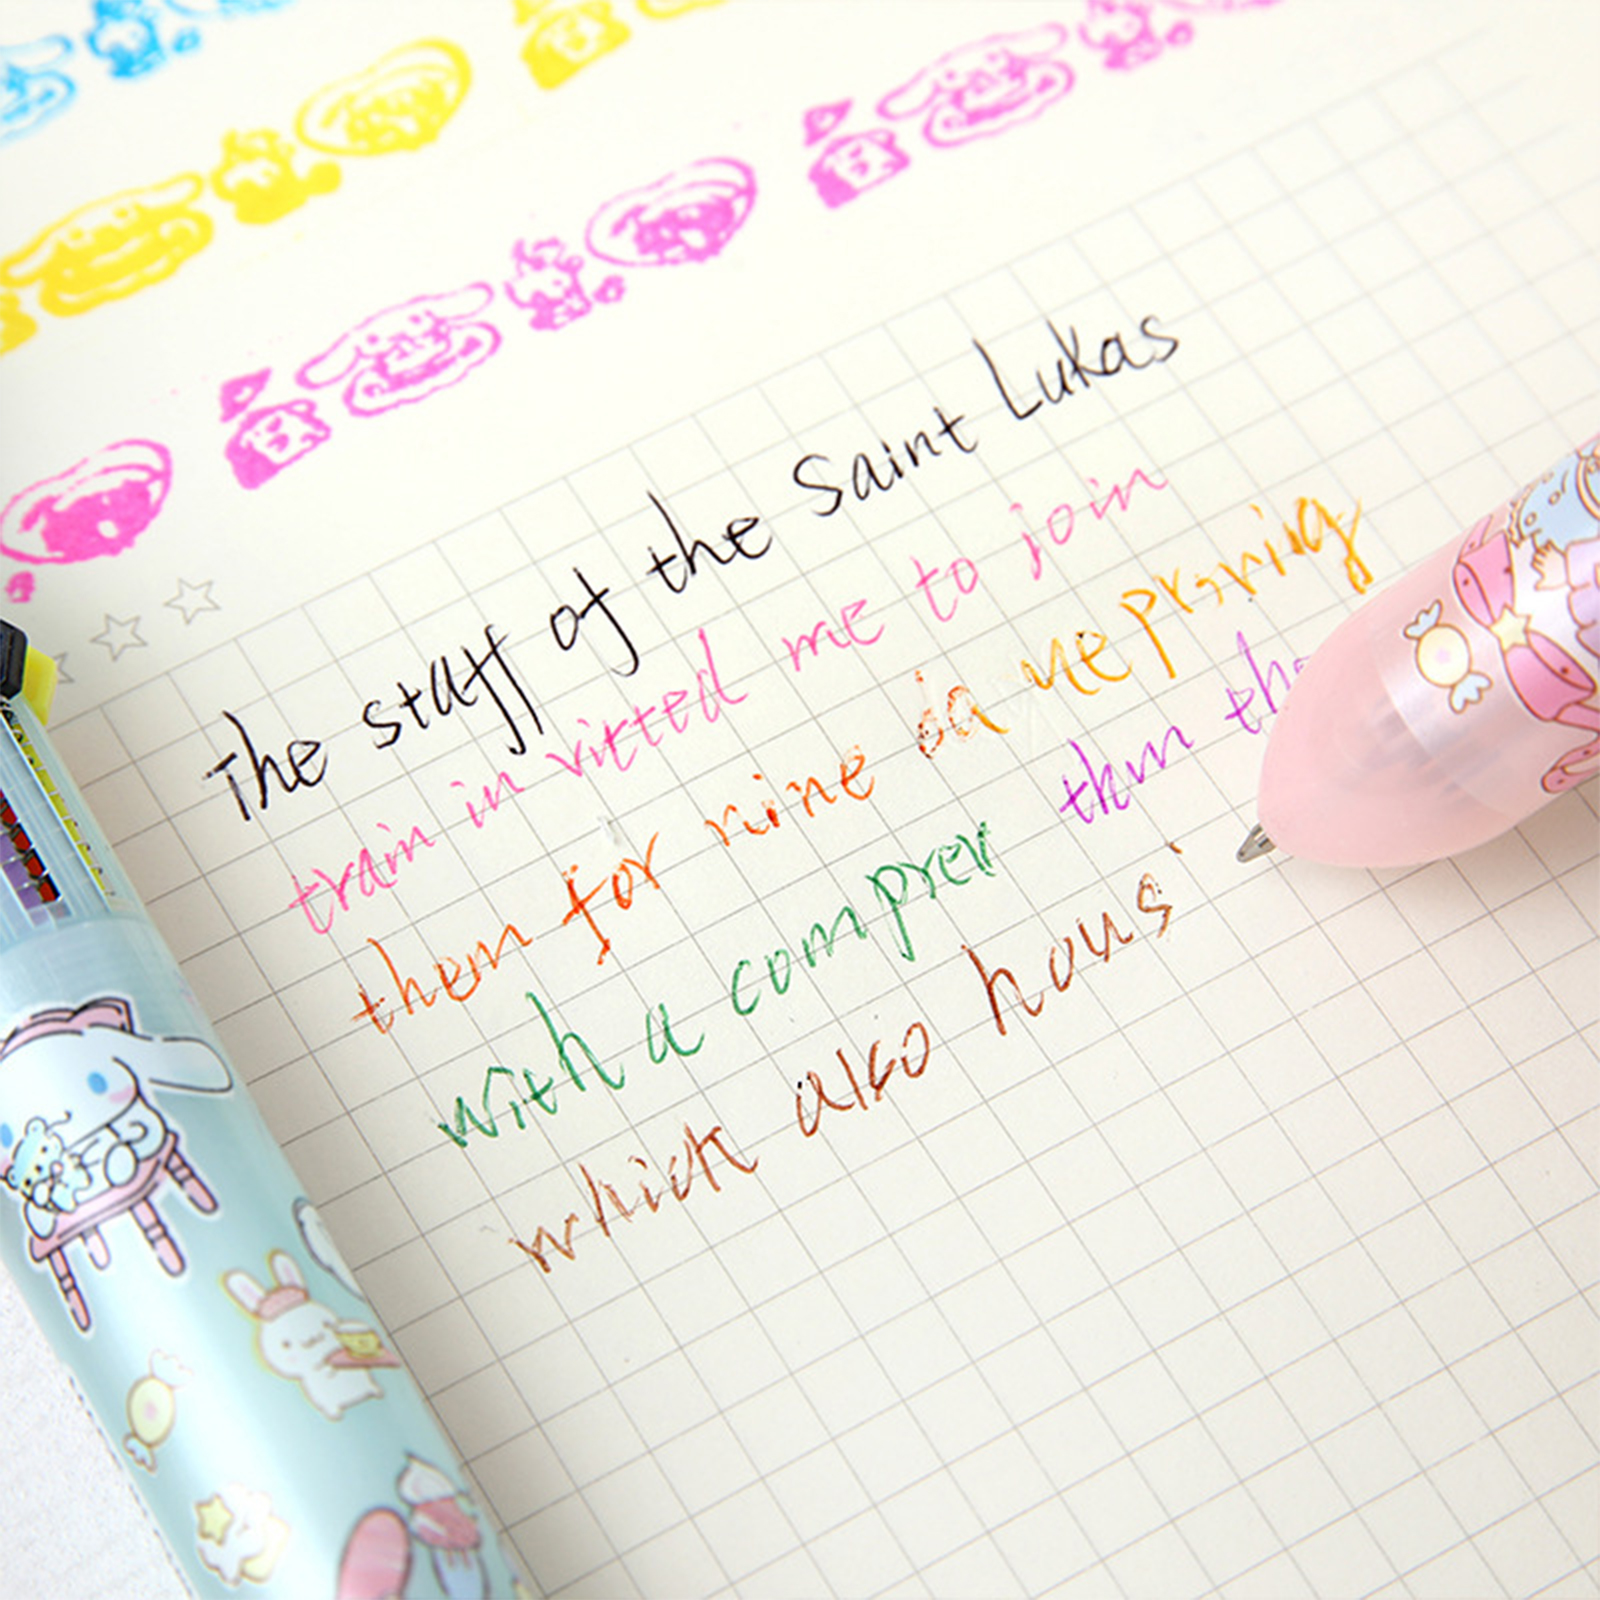 The staff of the Saint Lukas
train in vitted me to join
them for nine da
with a comprev thm
which also hous